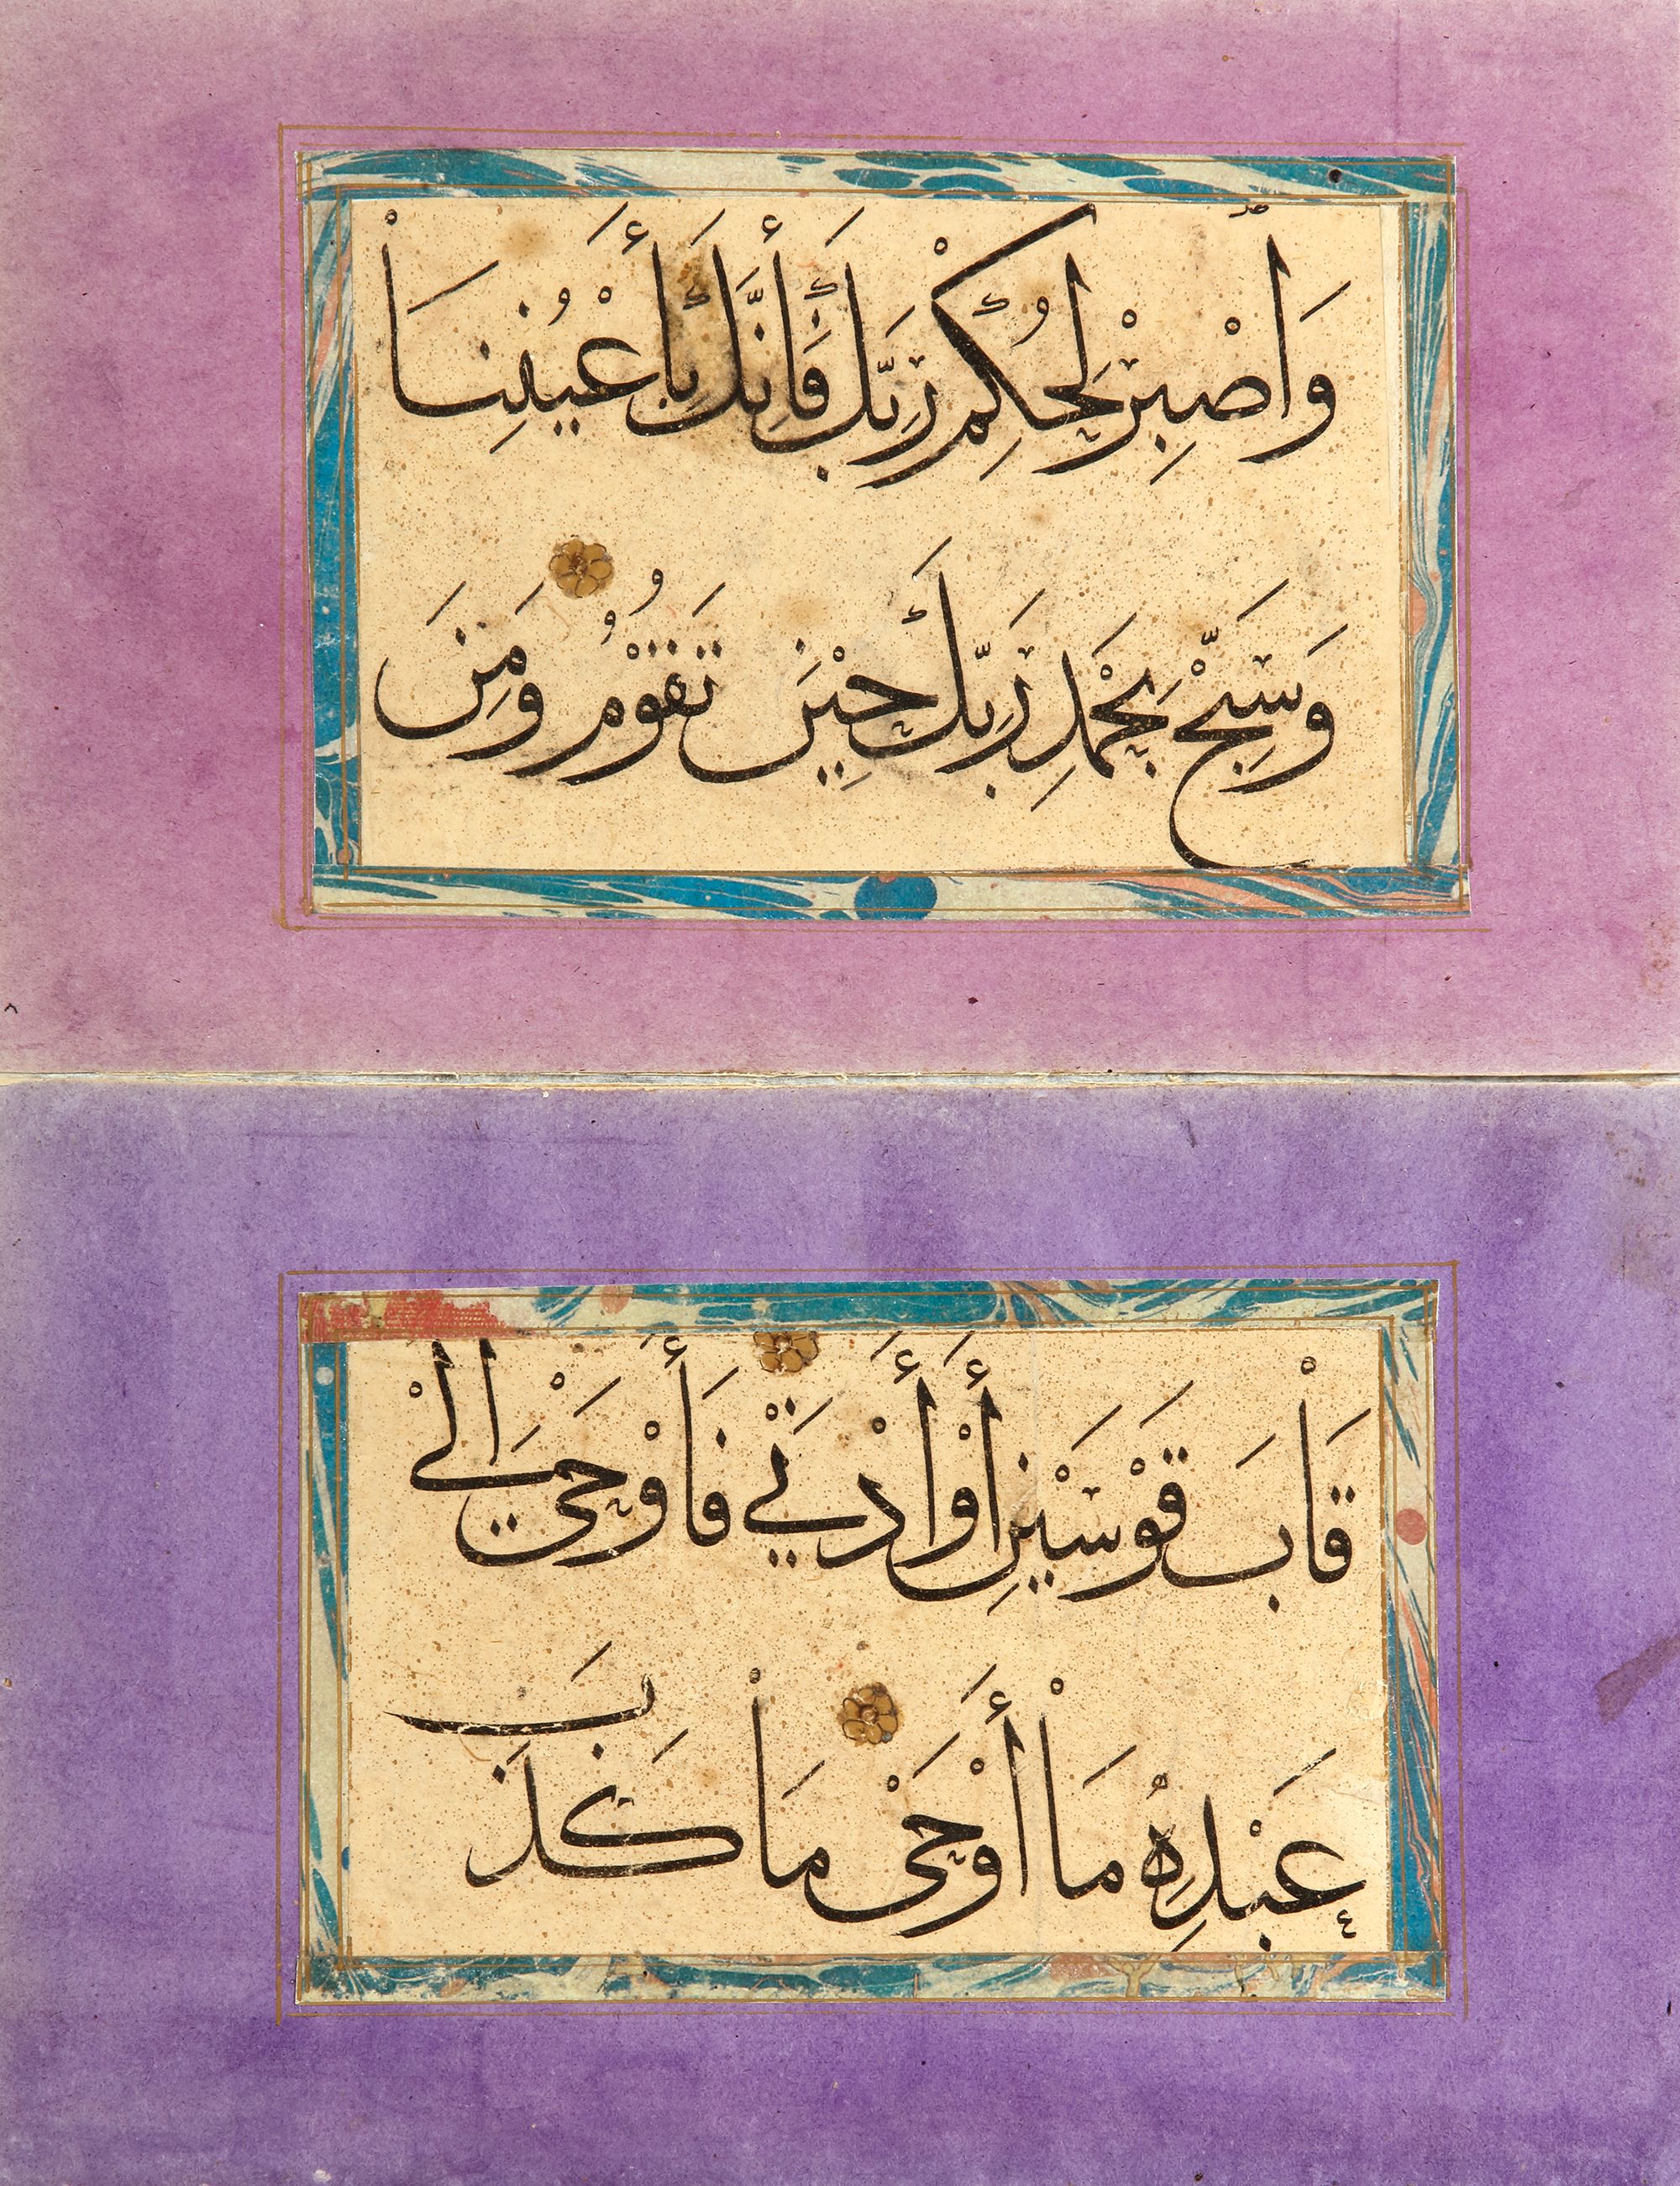 وَاصْبِرْ لِحُكْمِ رَبِّكَ فَإِنَّكَ بِأَعْيُنِنَا
وَسَبِّحْ بِحَمْدِ رَبِّكَ حِيْنَ تَقُوْمُ وَمِنَ
قَابَ قَوْسَيْنِ أَوْ أَدْنَي فَأَوْحَي اِلَي
عَبْدِهِ مَا أَوْحَى مَا كَذَبَ